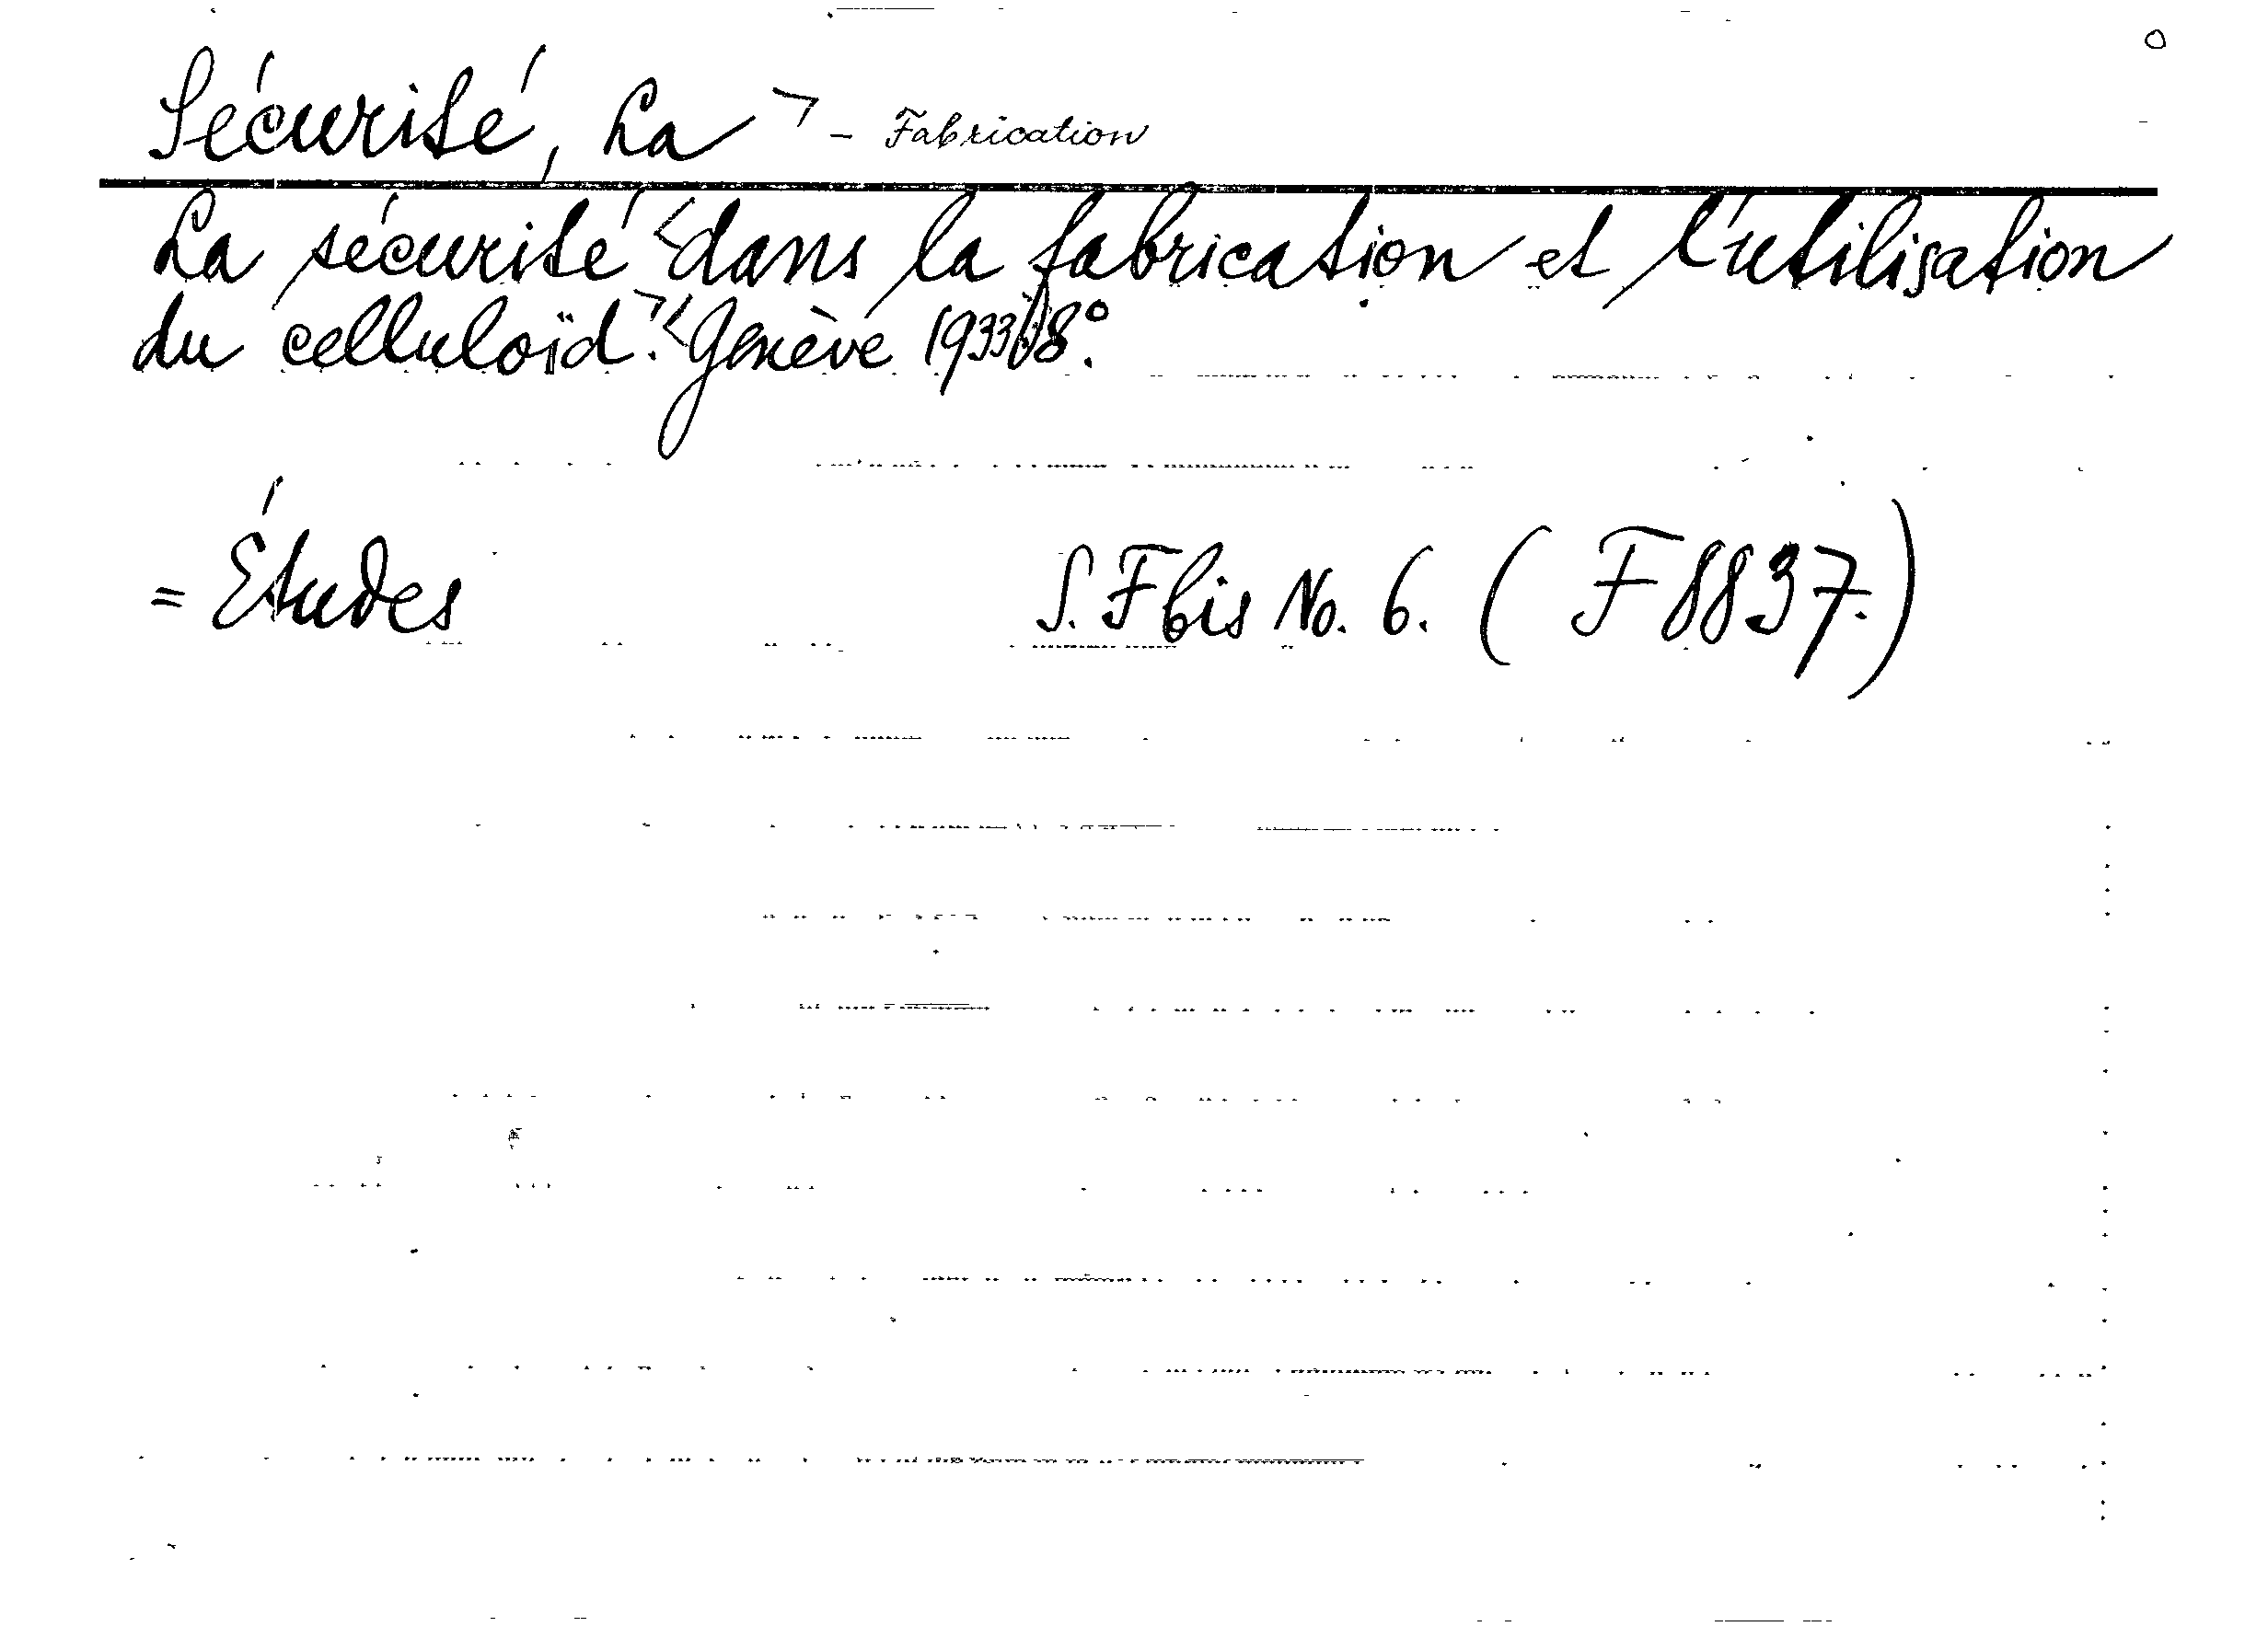 Sécurité, La > - Fabrication
La sécurité < dans la fabrication et l'utilisation
du celluloïd. > < Genève 1933. 8°.
= Études S. F bis No. 6. (F 8837.)